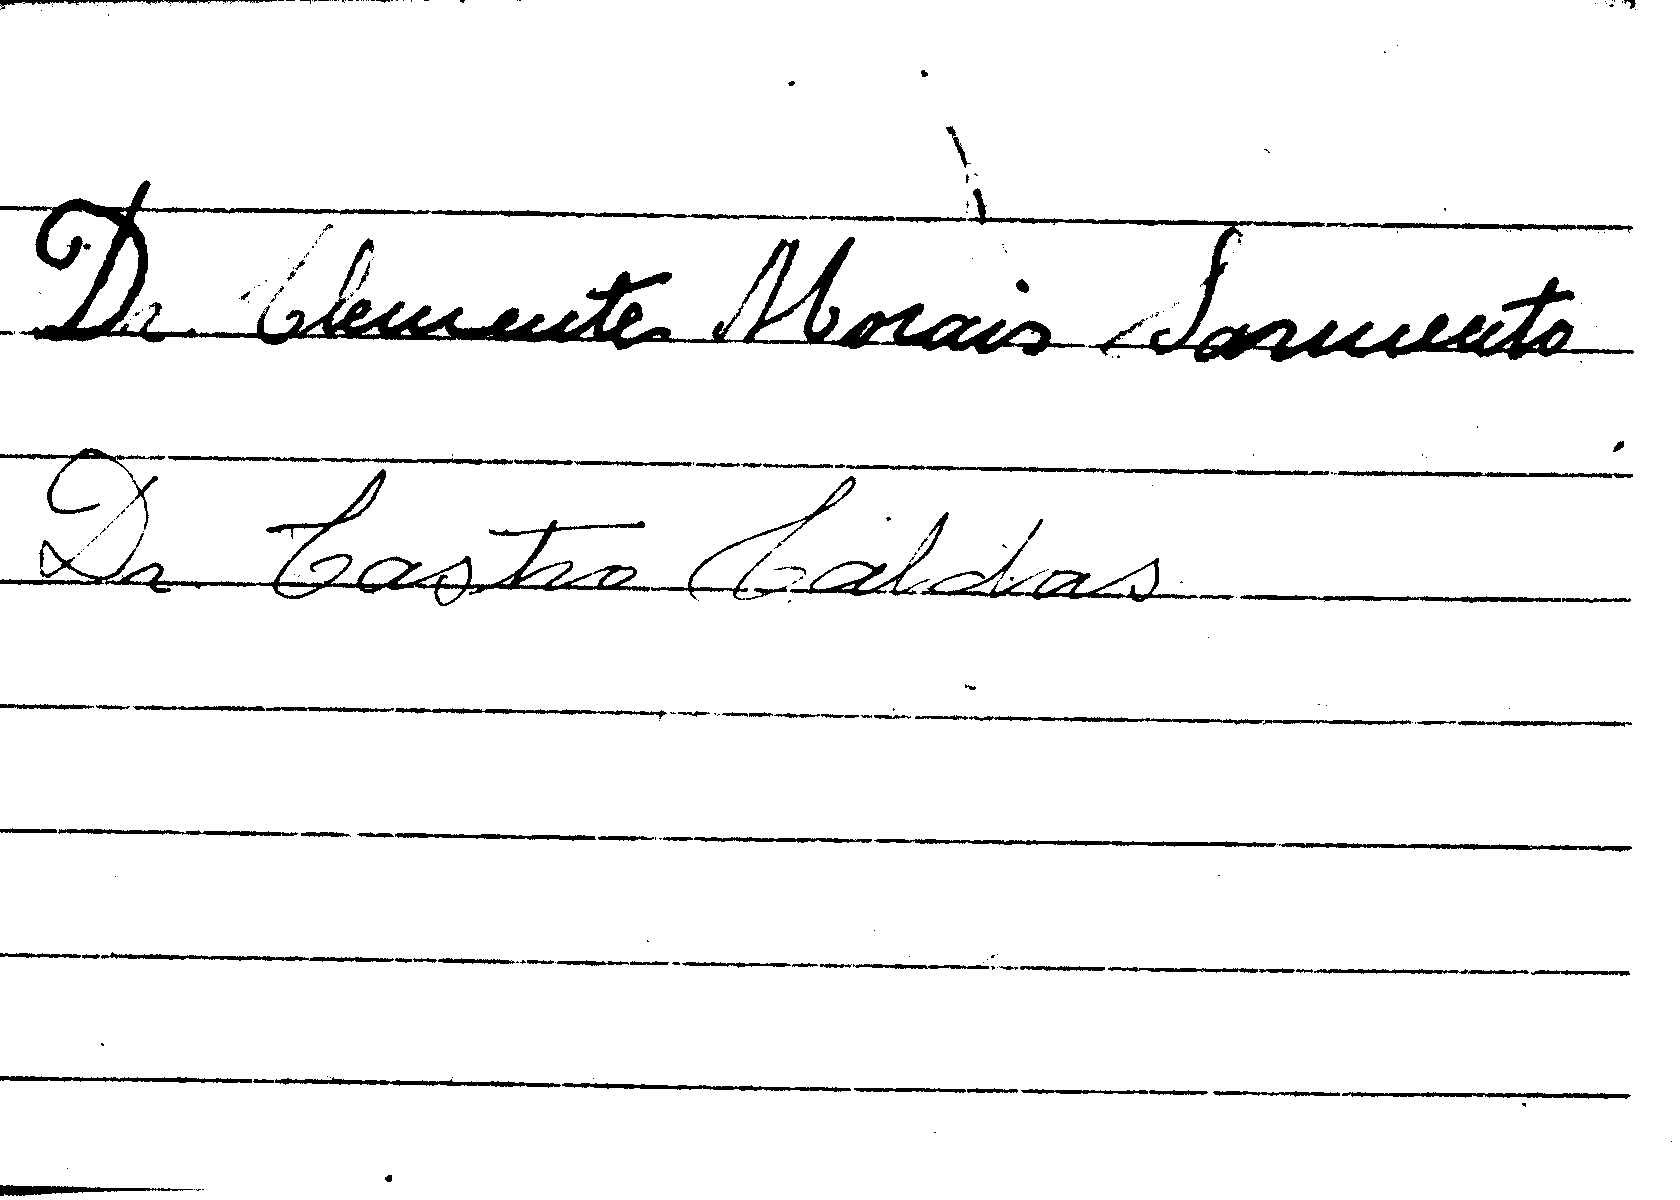 Dr. Clemente Morais Sarmento
Dr. Castro Caldas